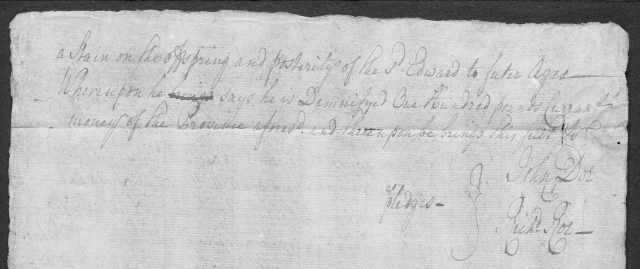 a Stain on the offspring and posterity of the Sd. Edward to future Ages
Whereupon he brings says he is Demnifyed One Hundred pounds Currant
money of the Province aforesd. and thereupon he brings this Suit &c
John Doe
Pledges
Richd. Roe